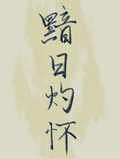 黯日灼怀